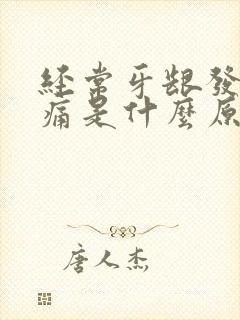 經常牙龈發
痛是什麼原
唐人杰